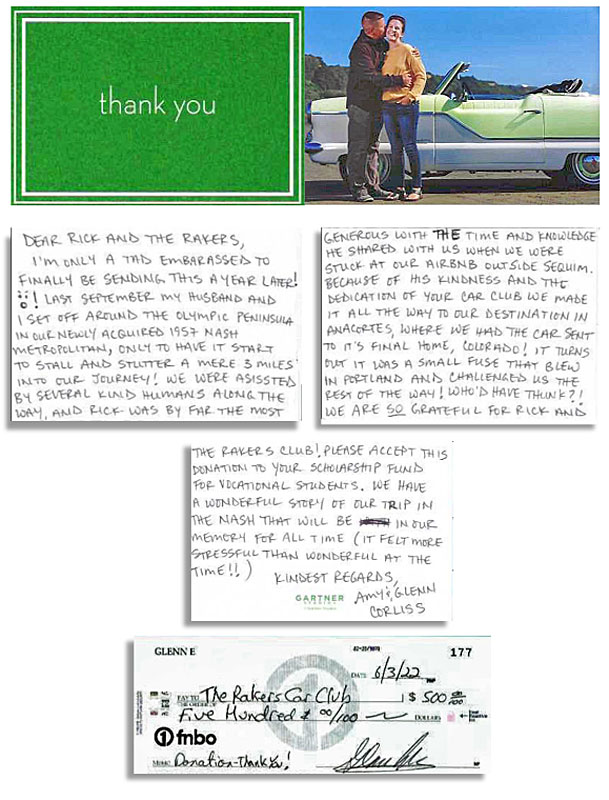 thank you
DEAR RICK AND THE RAKERS,
I'M ONLY A TAD EMBARASSED TO
FINALLY BE SENDING THIS A YEAR LATER!
! LAST SEPTEMBER MY HUSBAND AND
I SET OFF AROUND THE OLYMPIC PENINSULA
IN OUR NEWLY ACQUIRED 1957 NASH
METROPOLITAN, ONLY TO HAVE IT START
TO STALL AND STUTTER A MERE 3 MILES
INTO OUR JOURNEY! WE WERE ASISSTED
BY SEVERAL KIND HUMANS ALONG THE
WAY, AND RICK WAS BY FAR THE MOST
GENEROUS WITH THE TIME AND KNOWLEDGE
HE SHARED WITH US WHEN WE WERE
STUCK AT OUR AIRBNB OUTSIDE SEQUIM.
BECAUSE OF HIS KINDNESS AND THE
DEDICATION OF YOUR CAR CLUB WE MADE
IT ALL THE WAY TO OUR DESTINATION IN
ANACORTES, WHERE WE HAD THE CAR SENT
TO IT'S FINAL HOME, COLORADO! IT TURNS
OUT IT WAS A SMALL FUSE THAT BLEW
IN PORTLAND AND CHALLENGED US THE
REST OF THE WAY! WHO'D HAVE THUNK?!
WE ARE SO GRATEFUL FOR RICK AND
THE RAKERS CLUB! PLEASE ACCEPT THIS
DONATION TO YOUR SCHOLARSHIP FUND
FOR VOCATIONAL STUDENTS. WE HAVE
A WONDERFUL STORY OF OUR TRIP IN
THE NASH THAT WILL BE IN OUR
MEMORY FOR ALL TIME (IT FELT MORE
STRESSFUL THAN WONDERFUL AT THE
TIME!!)
KINDEST REGARDS,
AMY & GLENN
CORLISS
GARTNER
STUDIOS
GLENN E
177
DATE 6/3/22
PAY TO THE ORDER OF The Rakers Car Club $ 500 00/100
Five Hundred & 00/100 DOLLARS
1 fnbo
MEMO Donation-Thank You!